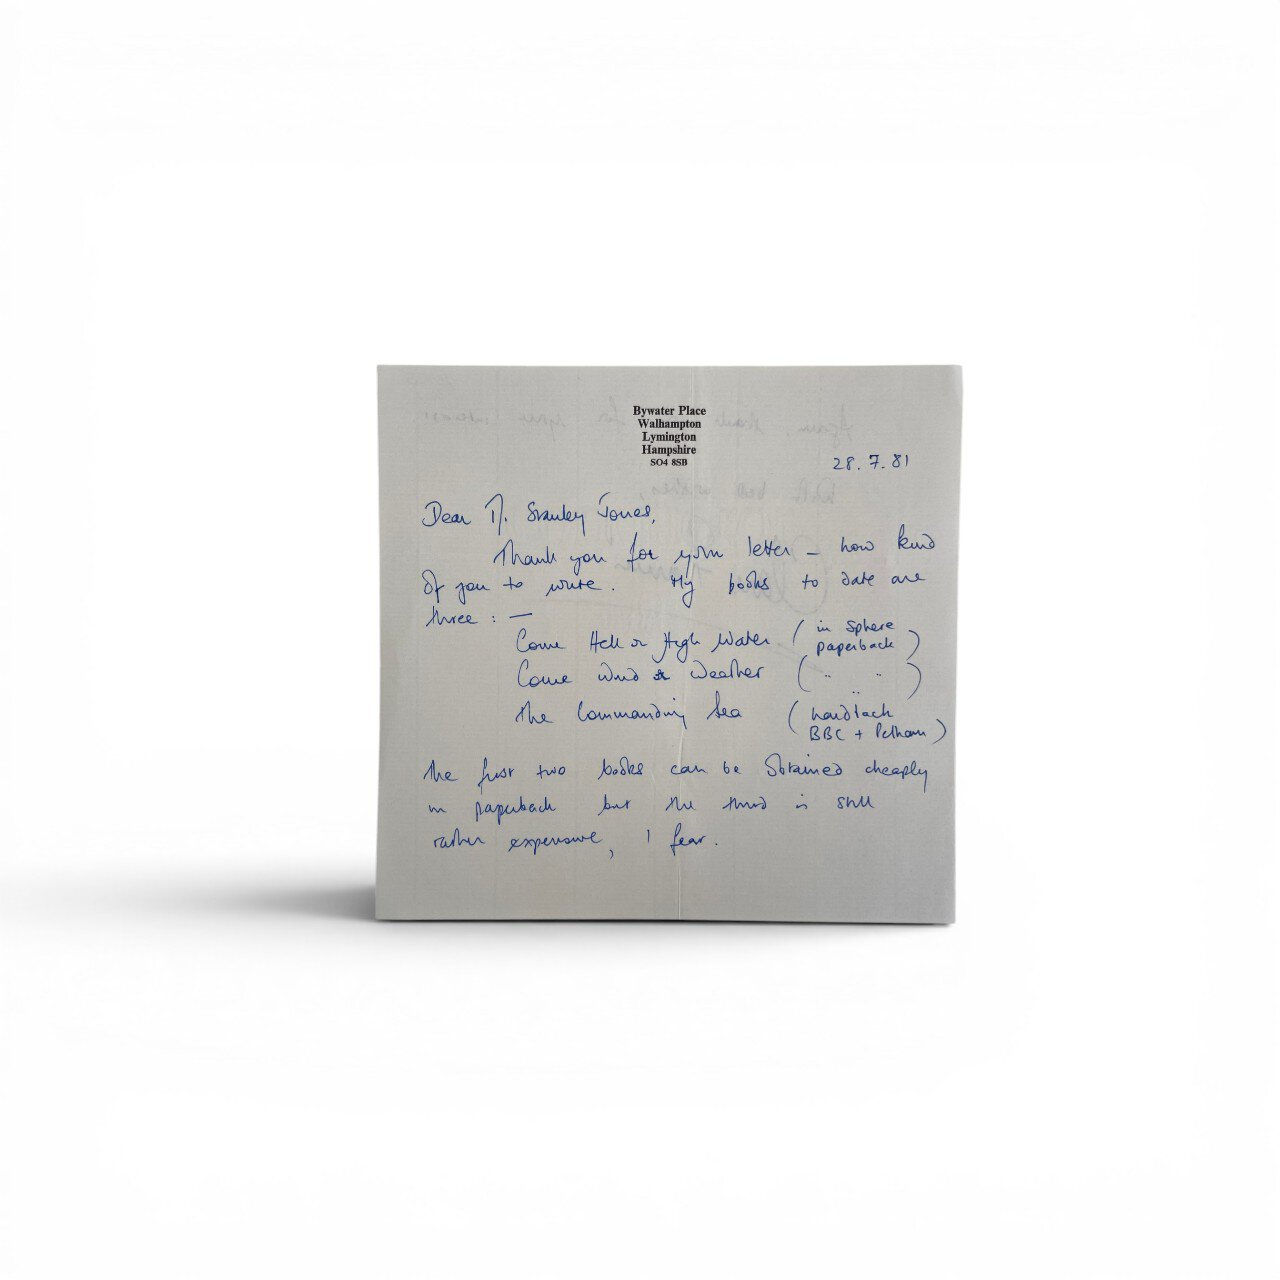 Bywater Place
Walhampton
Lymington
Hampshire
SO4 8SB
28.7.81
Dear M. Stanley Jones,
Thank you for your letter – how kind
of you to write. My books to date are
three : —
Come Hell or High Water (in Sphere
paperback)
Come Wind or Weather ( " " )
"
The Commanding Sea (hardback
BBC + Pelham)
The first two books can be obtained cheaply
in paperback but the third is still
rather expensive, I fear.
Again, thank for your
With best wishes,
Clare Francis